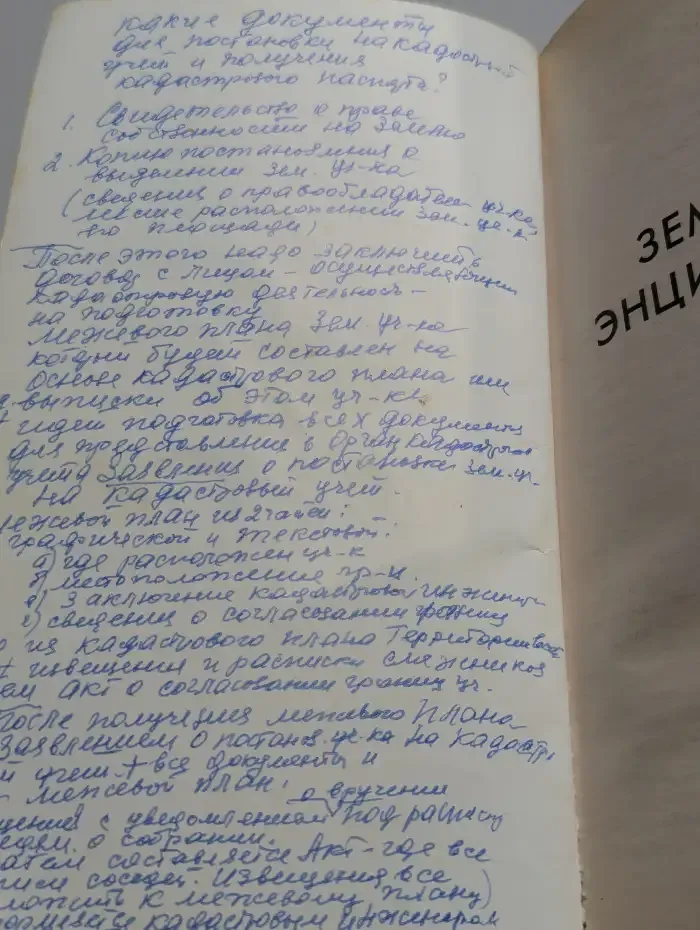 какие документы
для постановки на кадастр-й
учёт и получения
кадастрового паспорта?
1. Свидетельство о праве
собственности на землю
2. Копию постановления о
выделении зем. уч-ка
(сведения о правообладателе уч-ка,
расположении зем. уч-к
его площади)
После этого надо заключить
договор с лицом - осуществляющим
кадастровую деятельность -
на подготовку
межевого плана зем. уч-ка
который будет составлен на
основе кадастрового плана или
выписки об этом уч-ке
идет подготовка всех документов
для представления в орган кадастров
учета Заявления о постановке зем. уч-
на кадастровый учет.
межевой план из 2 частей:
графической и текстовой:
а) где расположен уч-к
б) местоположение гр-ц
в) Заключение кадастровой инженера
г) сведения о согласовании границ
из кадастрового плана территории
+ извещения и расписки смежников
Акт о согласовании границ уч.
После получения межевого плана
Заявлением о постан. уч-ка на кадастр.
й учет + все документы и
межевой план! о вручении
с уведомлением под расписку
о собрании.
затем составляется Акт - где все
соседи. Извещения все
к межевому плану)
кадастровым инженером
ЗЕМ
ЭНЦИ